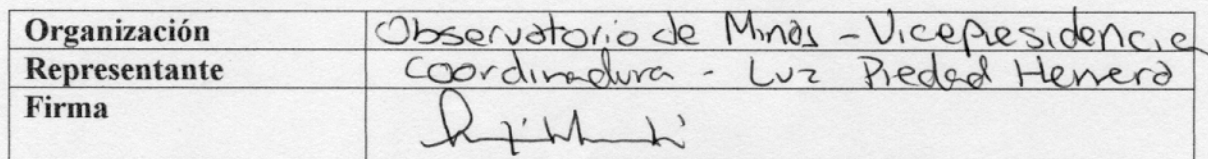 Organización Observatorio de Minas - Vicepresidencia
Representante Coordinadora - Luz Piedad Herrera
Firma